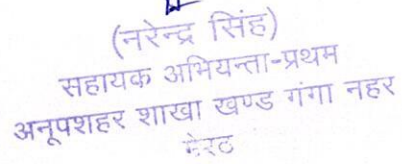 (नरेन्द्र सिंह)
सहायक अभियन्ता-प्रथम
अनूपशहर शाखा खण्ड गंगा नहर
मेरठ